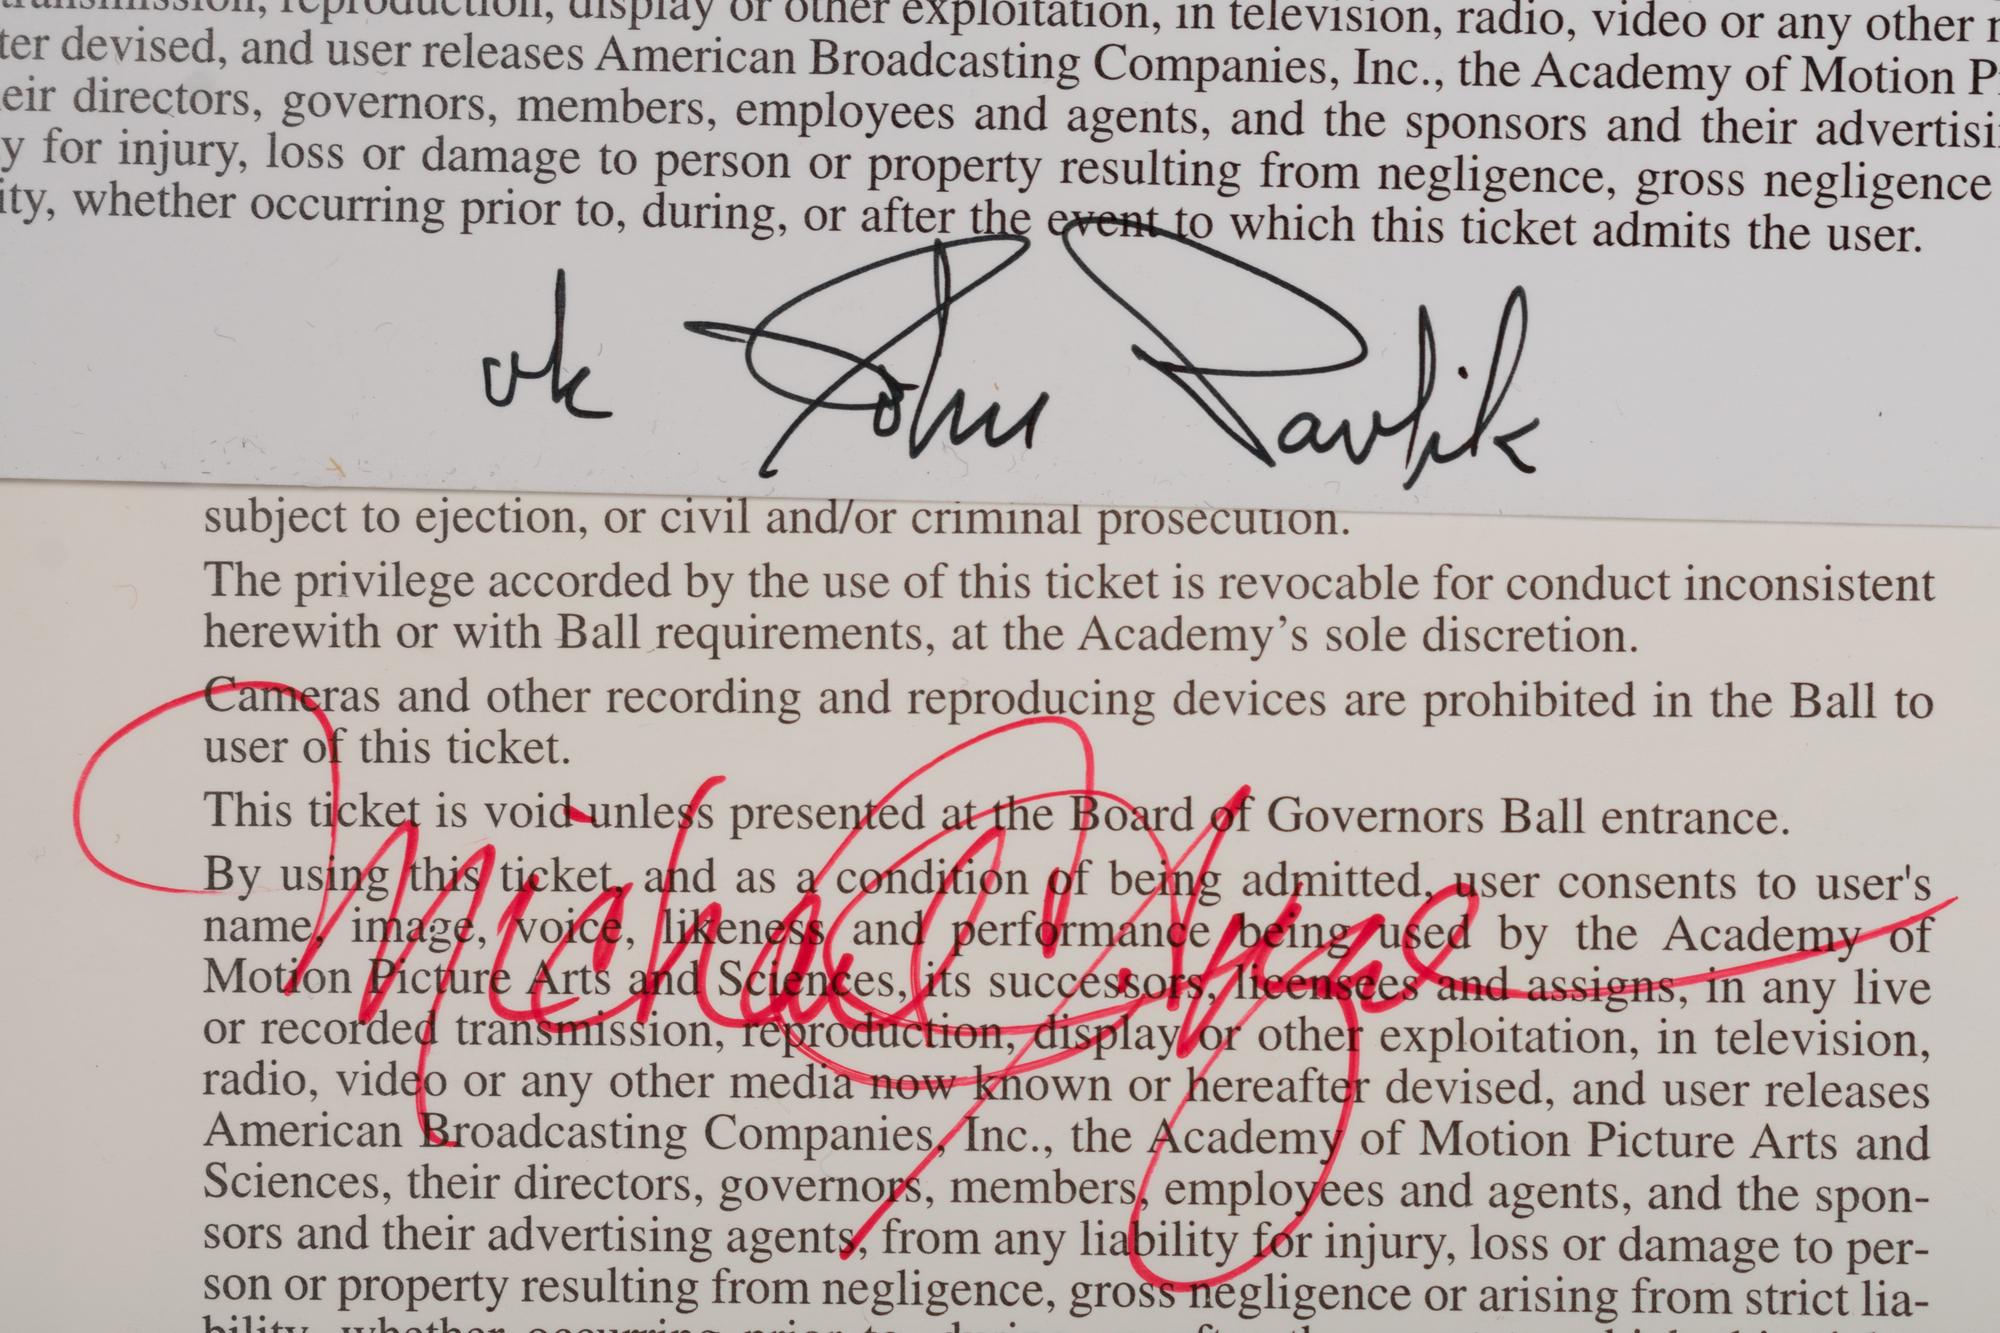 transmission, reproduction, display or other exploitation, in television, radio, video or any other
ter devised, and user releases American Broadcasting Companies, Inc., the Academy of Motion P
eir directors, governors, members, employees and agents, and the sponsors and their advertisi
y for injury, loss or damage to person or property resulting from negligence, gross negligence
ity, whether occurring prior to, during, or after the event to which this ticket admits the user.
ok John Pavlik
subject to ejection, or civil and/or criminal prosecution.
The privilege accorded by the use of this ticket is revocable for conduct inconsistent
herewith or with Ball requirements, at the Academy's sole discretion.
Cameras and other recording and reproducing devices are prohibited in the Ball to
user of this ticket.
This ticket is void unless presented at the Board of Governors Ball entrance.
By using this ticket, and as a condition of being admitted, user consents to user's
name, image, voice, likeness and performance being used by the Academy of
Motion Picture Arts and Sciences, its successors, licensees and assigns, in any live
or recorded transmission, reproduction, display or other exploitation, in television,
radio, video or any other media now known or hereafter devised, and user releases
American Broadcasting Companies, Inc., the Academy of Motion Picture Arts and
Sciences, their directors, governors, members, employees and agents, and the spon-
sors and their advertising agents, from any liability for injury, loss or damage to per-
son or property resulting from negligence, gross negligence or arising from strict lia-
bility, whether occurring prior to, during, or after the
Michael